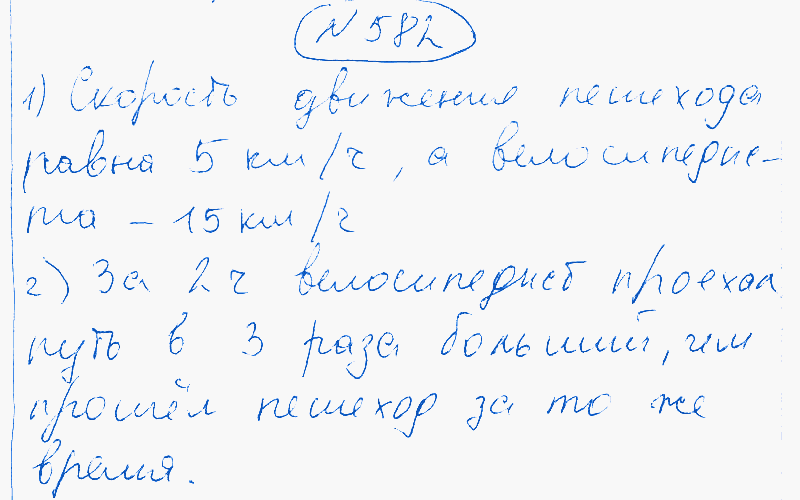 N 582
1) Скорость движения пешехода
равна 5 км/ч, а велосипедис-
та – 15 км/ч
2) За 2 ч велосипедист проехал
путь в 3 раза больший, чем
прошёл пешеход за то же
время.